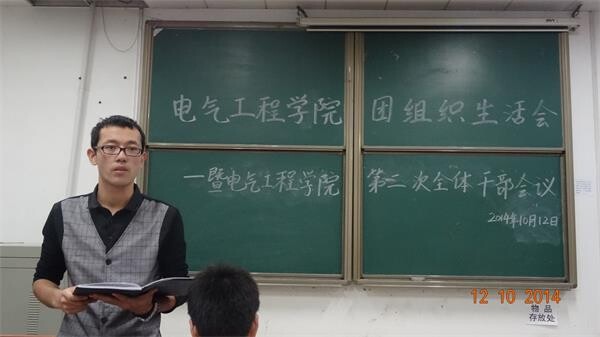 电气工程学院 团组织生活会
—暨电气工程学院 第二次全体干部会议
2014年10月12日
12 10 2014
物品
存放处